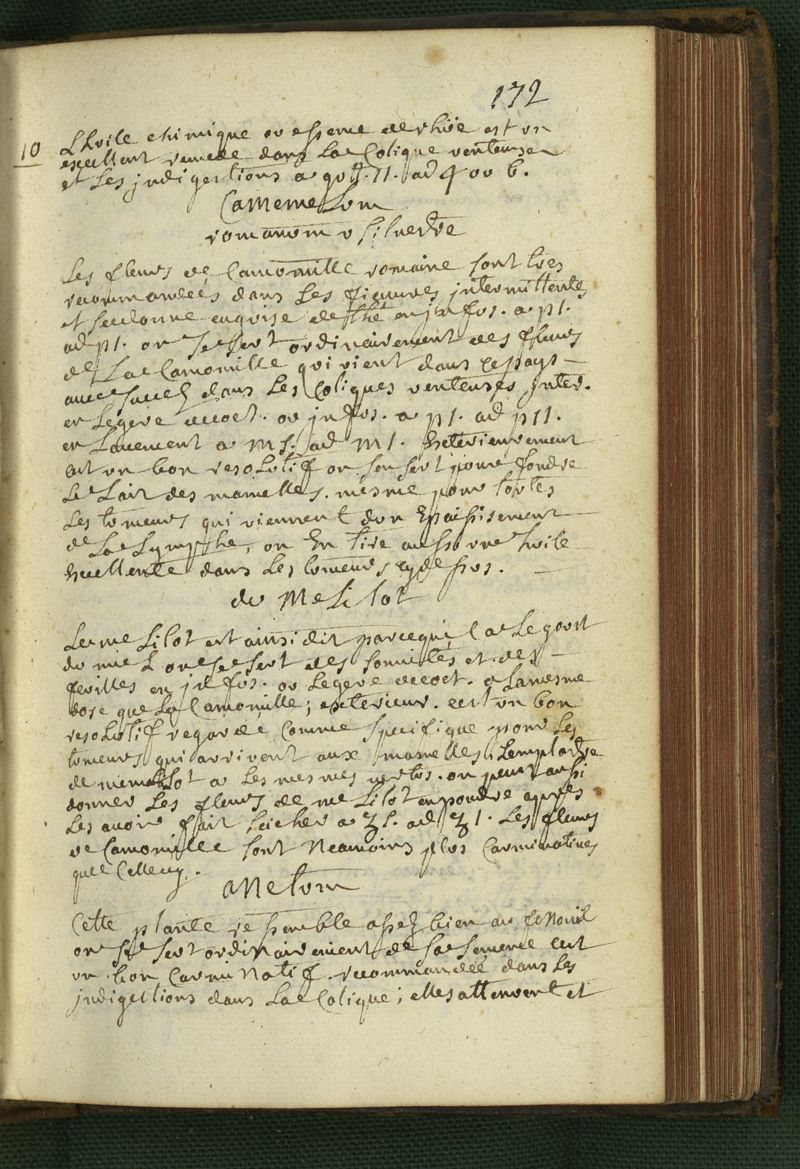 172
10
LHvile chimique ov essence de rhüe est vn
excellent remede dans La Colique venteuse
et Les jndigestions a gvtt. 11. ad 4 ov 6.
CaMeMeLvm
romanvm v silvestre
Les fleurs de Camomille romaine sont tres
recommandées dans Les fieuures jntermittentes
et se donne en gvise de thé en jnfvs. a p1.
ad p1. on se sert ordinairement des fleurs
de La Camomille qvi vient dans ce pays
auec succes dans Les Coliques ventenses jnter.
en Legere decoct. ov jnfvs. a p1. ad p11.
en Lauement a m s. ad m 1. Exterieurement
est vn bon resoLvtif on s'en sert pour fondre
Le Lait des mamelles. mesme pour toutes
Les tvmeurs qui viennent d'vn Epaissisement
de La Lymphe, on En tire aussi vne hvile
Excellente dans Les tvmeurs cy dessvs.
dv MeLilot
Le meLilot est ainsi dit parcequ'il a Le govst
dv mieL on se sert des somités et des
fevilles en jnfvs. ov Legere decoct. a La mesme
dose que La Camomille; exterieur. c'est vn bon
resoLvtif regardé Comme specifique pour Les
tvmeurs qui arrivent aux mamelles, L'emplastre
de meLilot a Les mesmes vertvs. on peut aussi
donner Les fleurs de meLilot en povdre apres
Les avoir fait seicher a ʒ s. ad ʒ 1. Les fleurs
de Camomille sont Neamoins plvs Carminatives
que Celle cy.
aNetvm
Cette plante ressemble assez bien au feNouil
on se sert ordiNairement de sa semence c'est
vn bon CarmiNatif recommandée dans Les
jndigestions dans La Colique; elles attenvent et